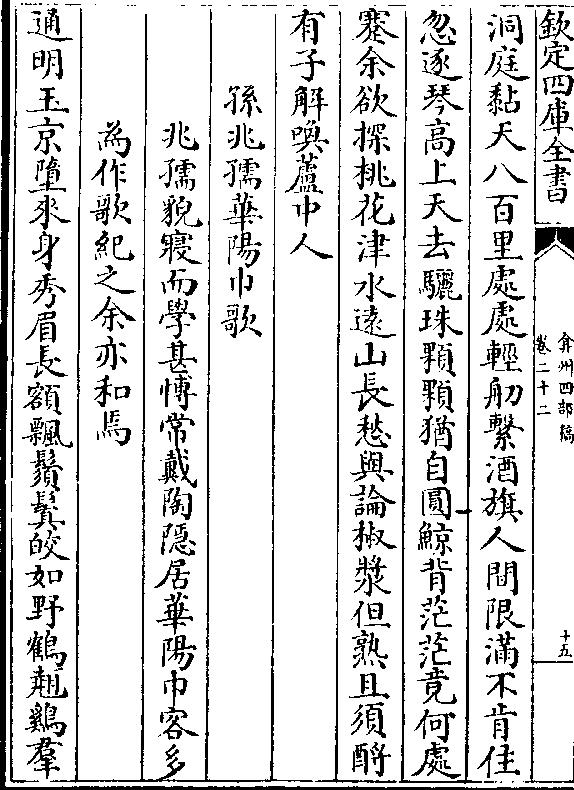 欽定四庫全書
弇州四部稿
卷二十二
十五
洞庭黏天八百里處處輕舠繫酒旗人間限滿不肯住
忽逐琴高上天去驪珠顆顆猶自圓鯨背茫茫竟何處
蹇余欲探桃花津水遠山長愁與論椒漿但熟且須酹
有子解喚蘆中人
孫兆孺華陽巾歌
兆孺貌寢而學甚慱常戴陶隱居華陽巾客多
為作歌紀之余亦和焉
通明玉京墮來身秀眉長額飄鬚鬂皎如野鶴翹鷄羣